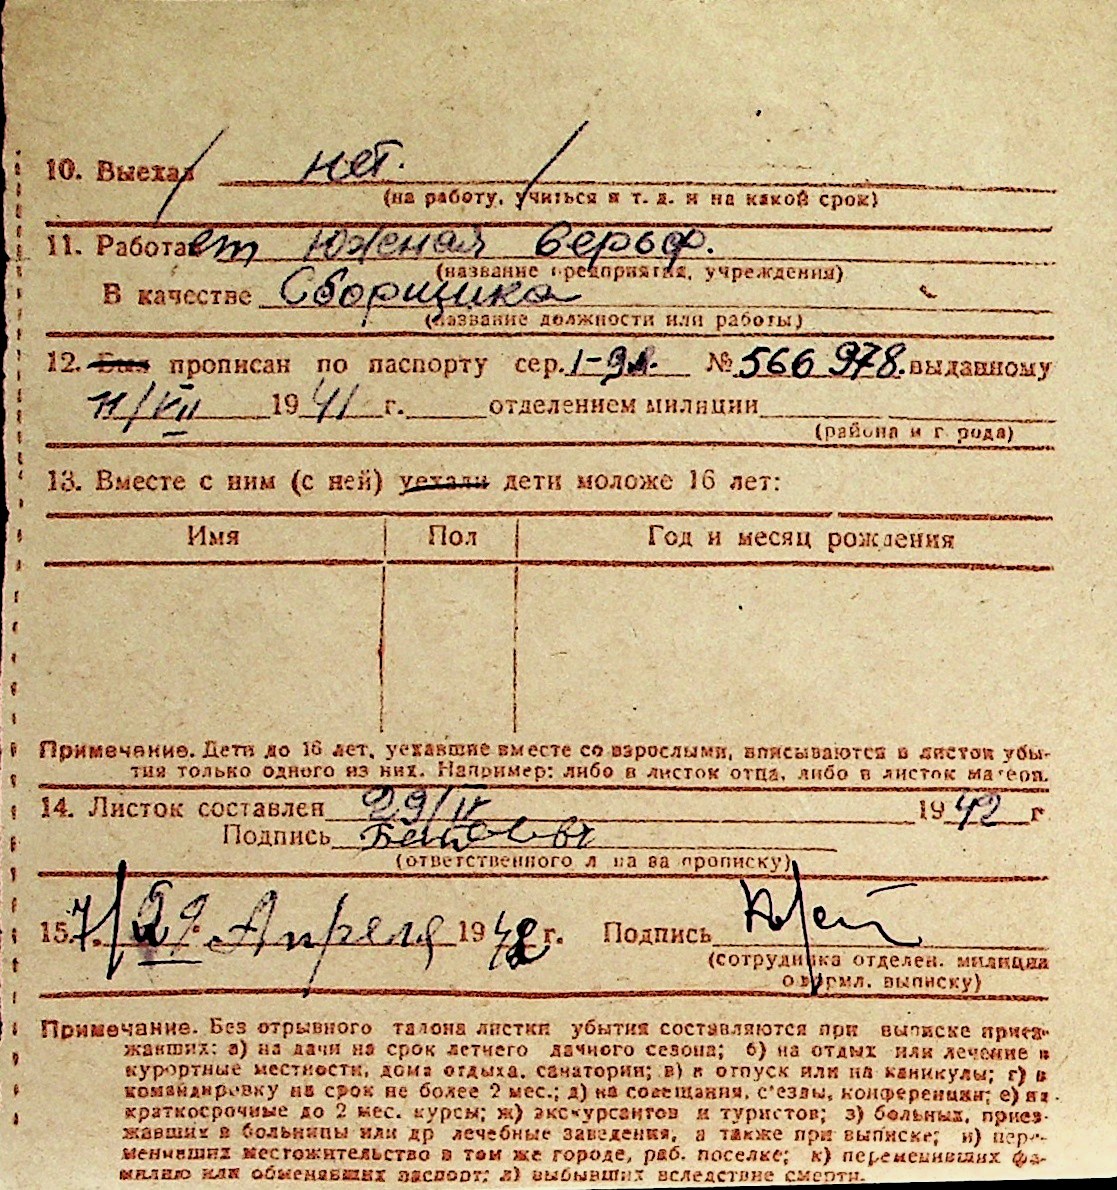 10. Выехал нет.
(на работу, учиться и т. д. и на какой срок)
11. Работает Южная верьф.
(название предприятия, учреждения)
В качестве Сборщика
(название должности или работы)
12. Был прописан по паспорту сер. № 566 978. выданному
11/VII 1941 г. отделением милиции
(района и города)
13. Вместе с ним (с ней) уехали дети моложе 16 лет:
Имя Пол Год и месяц рождения
Примечание. Дети до 16 лет, уехавшие вместе со взрослыми, вписываются в листок убы-
тия только одного из них. Например: либо в листок отца, либо в листок матери.
14. Листок составлен 29/IV 1942 г
Подпись
(ответственного лица за прописку)
15. 29. Апреля 1942 г. Подпись
(сотрудника отделен. милиции
оформл. выписку)
Примечание. Без отрывного талона листки убытия составляются при выписке приез-
жавших: а) на дачи на срок летнего дачного сезона; б) на отдых или лечение в
курортные местности, дома отдыха, санатории; в) в отпуск или на каникулы; г) в
командировку на срок не более 2 мес.; д) на совещания, с'езды, конференции; е) на
краткосрочные до 2 мес. курсы; ж) экскурсантов и туристов; з) больных, приез-
жавших в больницы или др лечебные заведения, а также при выписке; и) пере-
менивших местожительство в том же городе, раб. поселке; к) переменивших фа-
милию или обменявших паспорт; л) выбывших вследствие смерти.